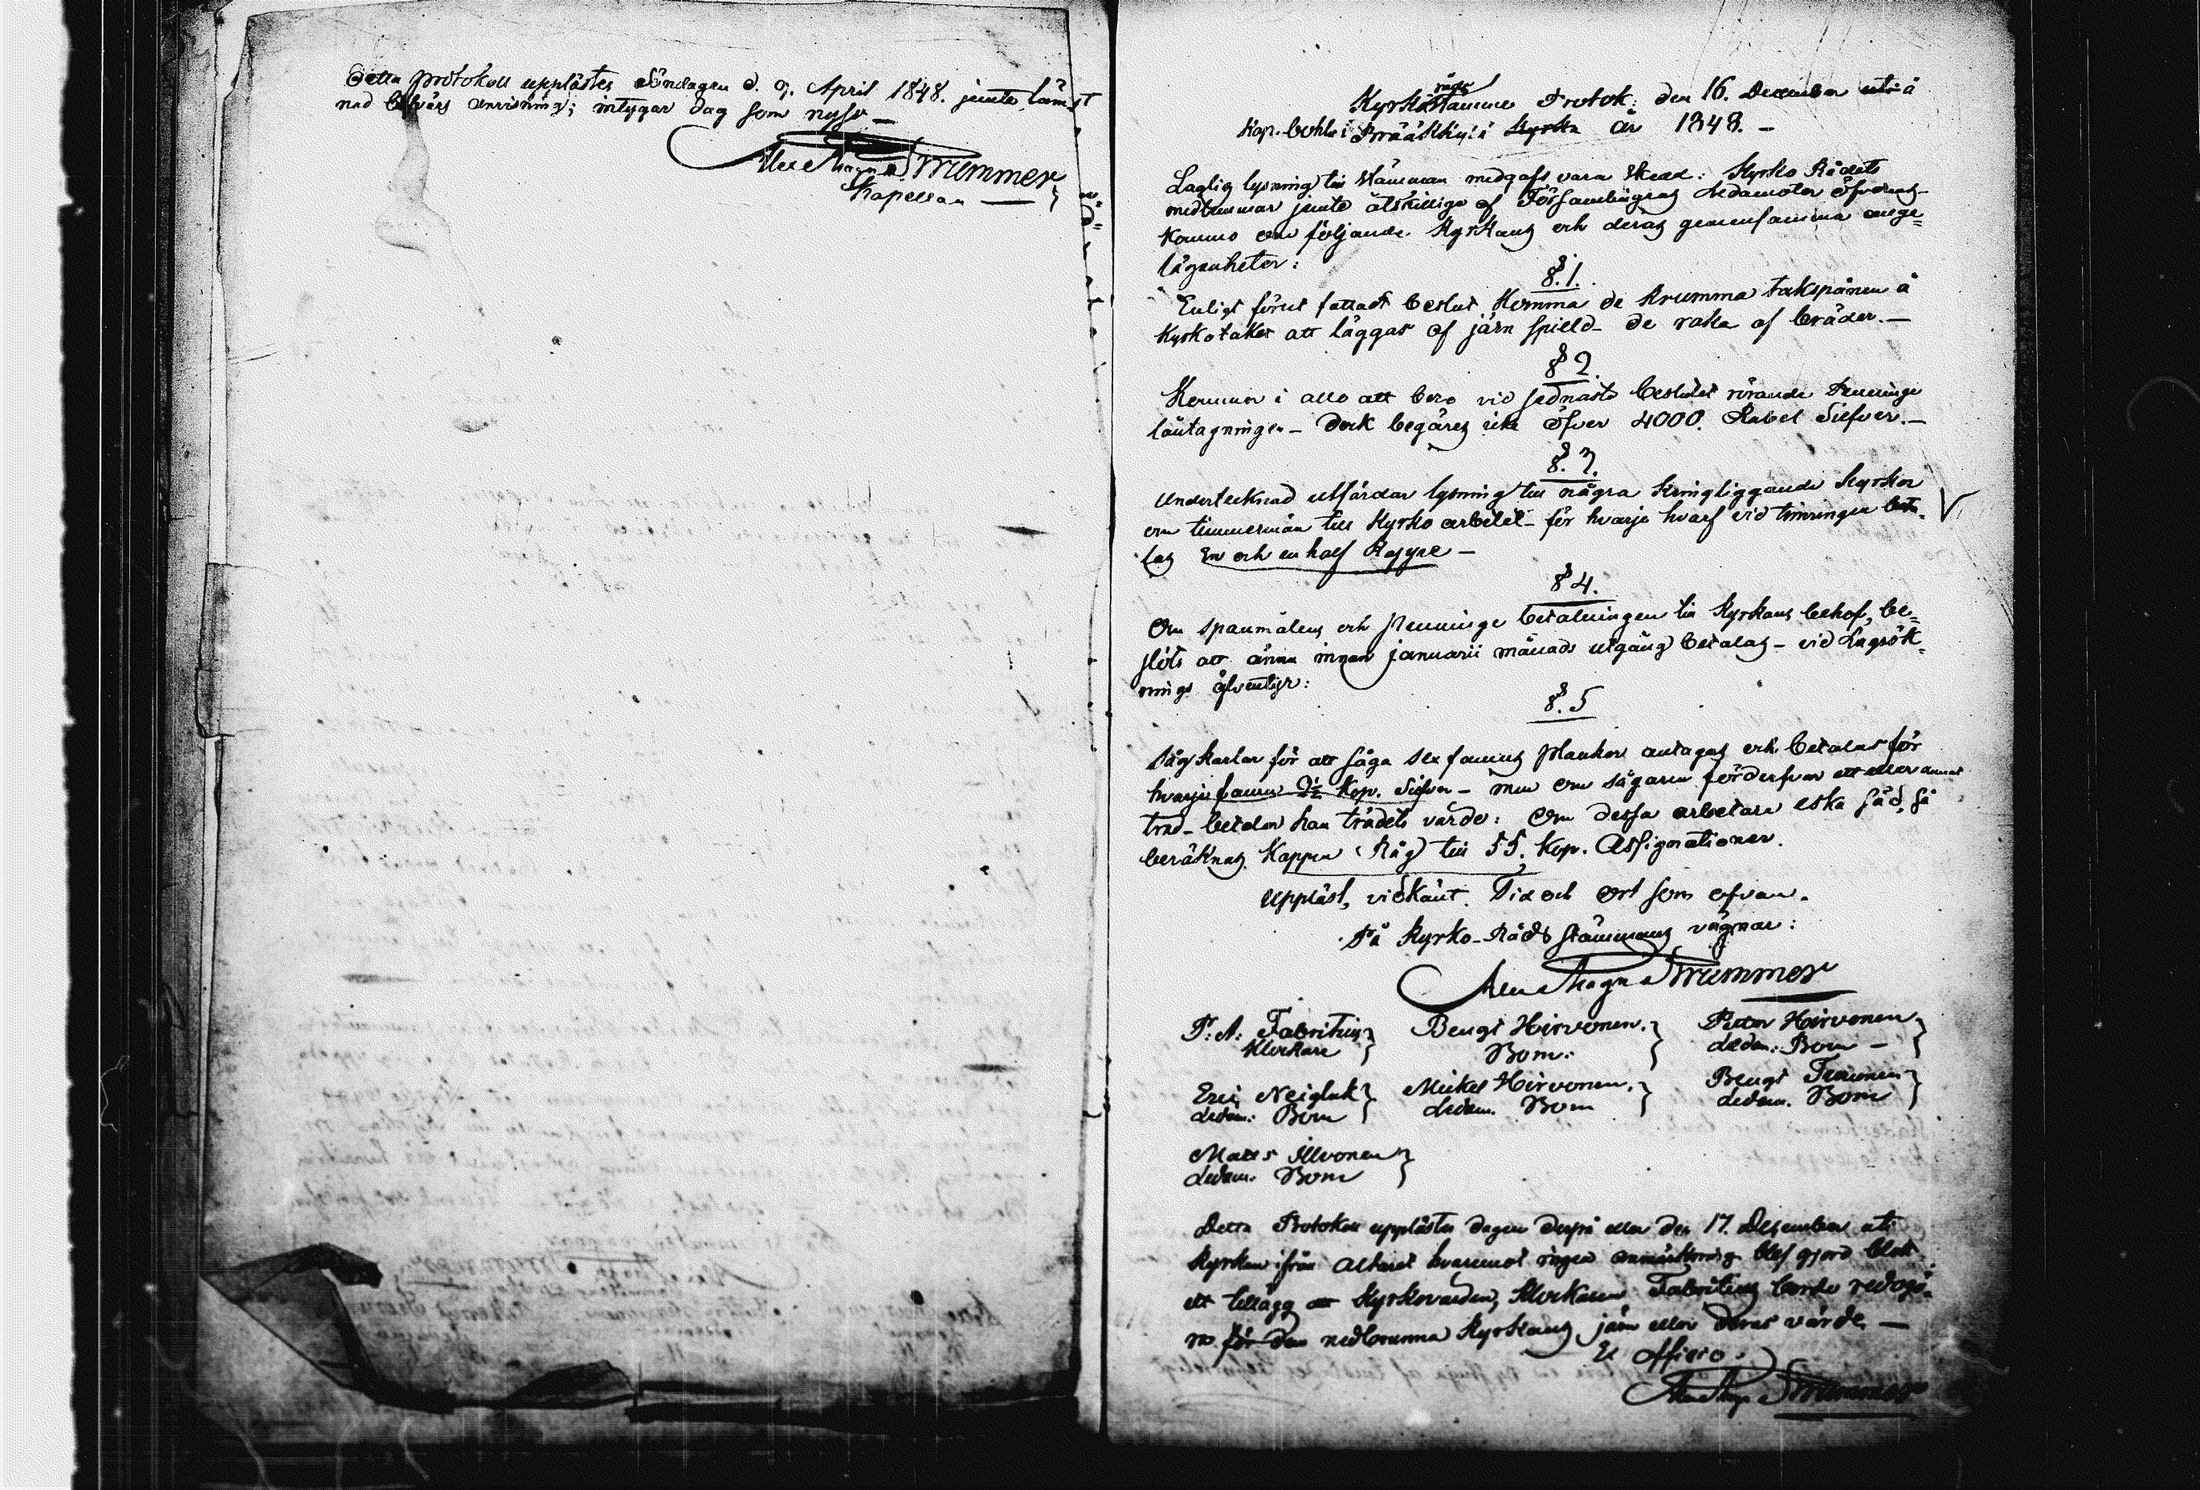 Detta protokoll upplästes Söndagen d. 9. April 1848. jemte lämst
nad besvärs anvisning; intygar dag som nyss —
Alex Magn Strummer
Kapellan —
råds
Kyrkostämme Protok: den 16. December uti å
Kap. bohle i Bräkylä Kyrka år 1848. —
Laglig lysning till stämman medgafs vara skedd: Kyrko Rådets
medlemmar jemte åtskillige af Församlingens ledamöter öfverens-
kommo om följande Kyrkans och deras gemensamma ange=
lägenheter:
§. 1.
Enligt förut fattadt beslut komma de krumma takspånen å
kyrkotaket att läggas af järn spield — de raka af bräder. —
§ 2.
Kommer i allo att bero vid sednaste beslutet rörande Penninge
låntagningen — dock begäres icke öfver 4000. Rubel Silfver. —
§. 3.
Undertecknad utfärdar lysning till några kringliggande kyrkor
om timmermän till Kyrko arbetet — för hvarje hvarf vid timringen beta-
las En och en half Kopyne —
§ 4.
Om spanmålens och Penninge betalningen till Kyrkans behof, be=
slöts att ännu innan januarii månads utgång betalas — vid Lagsök=
nings äfventyr:
§. 5
Såg karlar för att såga sex famns plankor antagas och betalas för
hvarje famn 2½ Kop. Silfver — men om sågaren förderfvar ett eller annat
träd — betalar han trädets värde: Om dessa arbetare äska säd, så
beräknas Kappen (Råg) till 55. Kop. Assignationer.
Uppläst, vidkänt. Tid och ort som ofvan.
På Kyrko-Råds stämmans vägnar:
Alex Magn Strummer
P: A: Fabritius
Klockare
Bengt Hirvonen.
Bom:
Petter Hirvonen
Ledam: Bom —
Eric Neigluk
Ledam: Bom
Mickel Hirvonen.
Ledam. Bom
Bengt Teuvonen
Ledam. Bom
Matts Illvonen
Ledam. Bom
Detta Protokoll upplästes dagen derpå eller den 17. December uti
Kyrkan ifrån Altaret hvaremot ingen anmärkning blef gjord blott
ett tillägg att Kyrkovärden, Klockaren Fabritius borde redogö=
ra för den nedbrunna Kyrkans järn eller deras värde. —
Ex officio.
Alex Magn Strummer